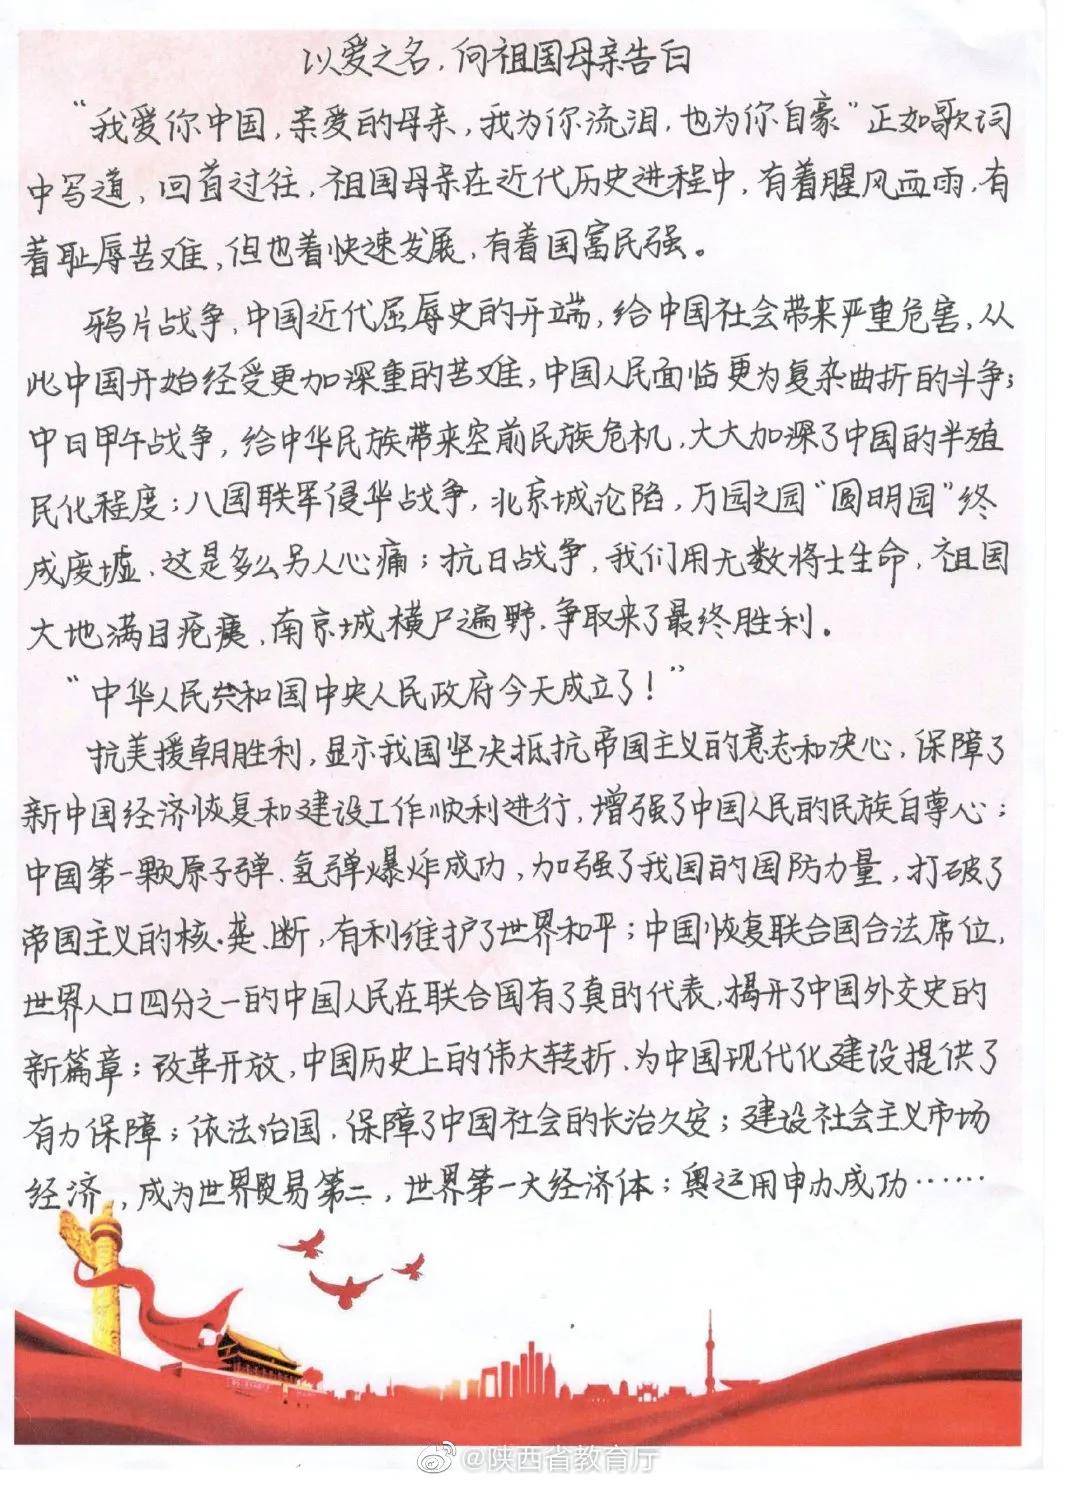 以爱之名,向祖国母亲告白
“我爱你中国,亲爱的母亲,我为你流泪,也为你自豪”正如歌词
中写道,回首过往,祖国母亲在近代历史进程中,有着腥风血雨,有
着耻辱苦难,但也着快速发展,有着国富民强。
鸦片战争,中国近代屈辱史的开端,给中国社会带来严重危害,从
此中国开始经受更加深重的苦难,中国人民面临更为复杂曲折的斗争;
中日甲午战争,给中华民族带来空前民族危机,大大加深了中国的半殖
民化程度;八国联军侵华战争,北京城沦陷,万园之园“圆明园”终
成废墟、这是多么另人心痛;抗日战争,我们用无数将士生命,祖国
大地满目疮痍,南京城横尸遍野,争取来了最终胜利。
“中华人民共和国中央人民政府今天成立了!”
抗美援朝胜利,显示我国坚决抵抗帝国主义的意志和决心,保障了
新中国经济恢复和建设工作顺利进行,增强了中国人民的民族自尊心;
中国第一颗原子弹、氢弹爆炸成功,加强了我国的国防力量,打破了
帝国主义的核垄断,有利维护了世界和平;中国恢复联合国合法席位,
世界人口四分之一的中国人民在联合国有了真的代表,揭开了中国外交史的
新篇章;改革开放,中国历史上的伟大转折、为中国现代化建设提供了
有力保障;依法治国,保障了中国社会的长治久安;建设社会主义市场
经济,成为世界贸易第二,世界第一大经济体;奥运用申办成功……
@陕西省教育厅